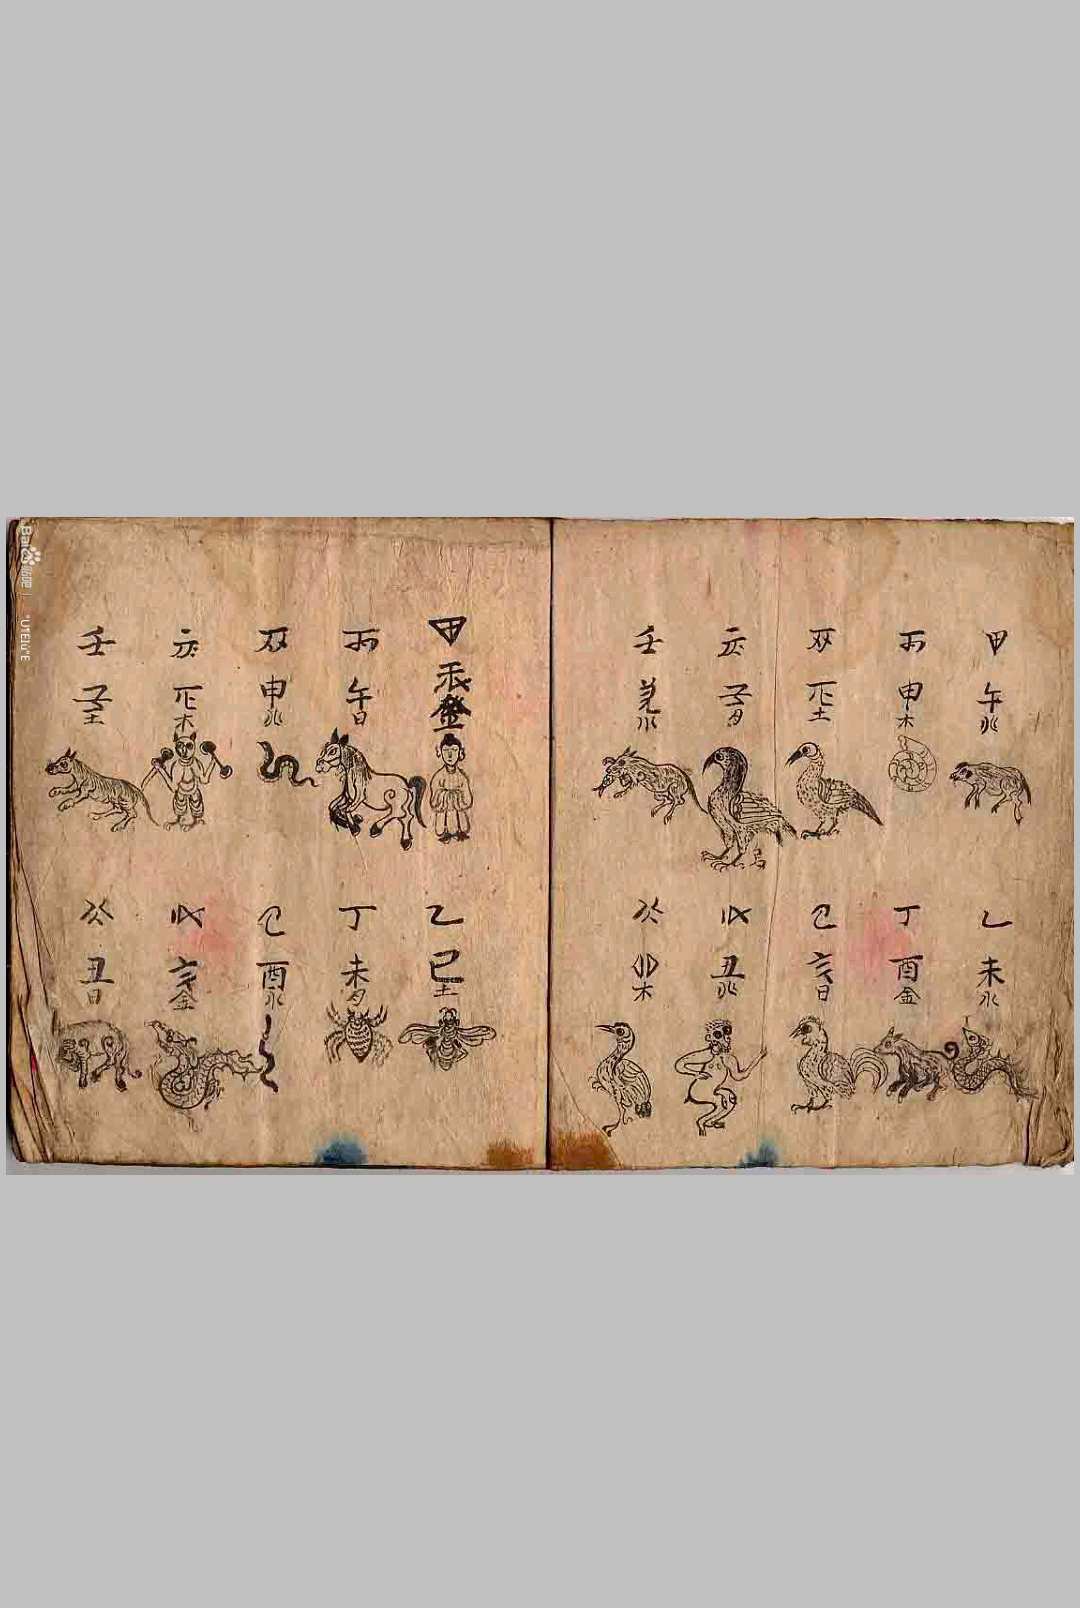 甲午火
丙申木
戊戌土
庚子月
壬寅水
乙未水
丁酉金
己亥日
辛丑火
癸卯木
甲辰金
丙午日
戊申火
庚戌木
壬子土
乙巳土
丁未月
己酉水
辛亥金
癸丑日